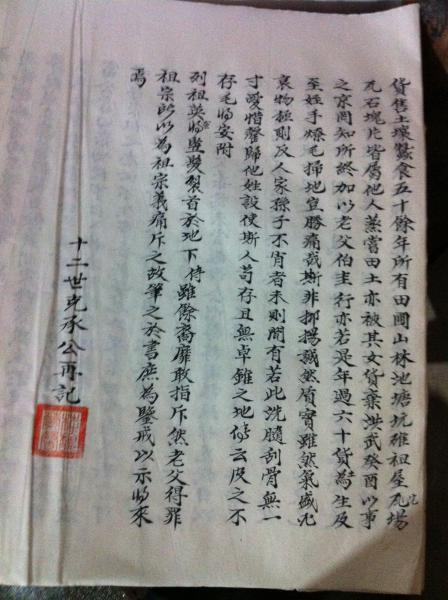 貨售土壤鬻食五十餘年所有田園山林池塘坑碓祖屋瓦場
瓦石塊片皆屬他人蒸嘗田土亦被其女貨棄洪武癸酉以事
之京罔知所終加以老父伯圭行亦若是年過六十貨為生及
至姪手燎毛掃地豈勝痛哉斯非揶揚誠然眞實雖然氣盛尤
衰物極則反人家孫子不肖者未則間有若此洗髓刮骨無一
寸愛惜罄歸他姓設使斯人苟存且無卓錐之地傳云皮之不
存毛將安附
列祖英將豎髮裂首於地下侍雖條裔靡敢指斥然老父得罪
祖宗所以為祖宗義痛斥之故筆之於書庶為鑒戒以示將來
焉
十二世克承公再記